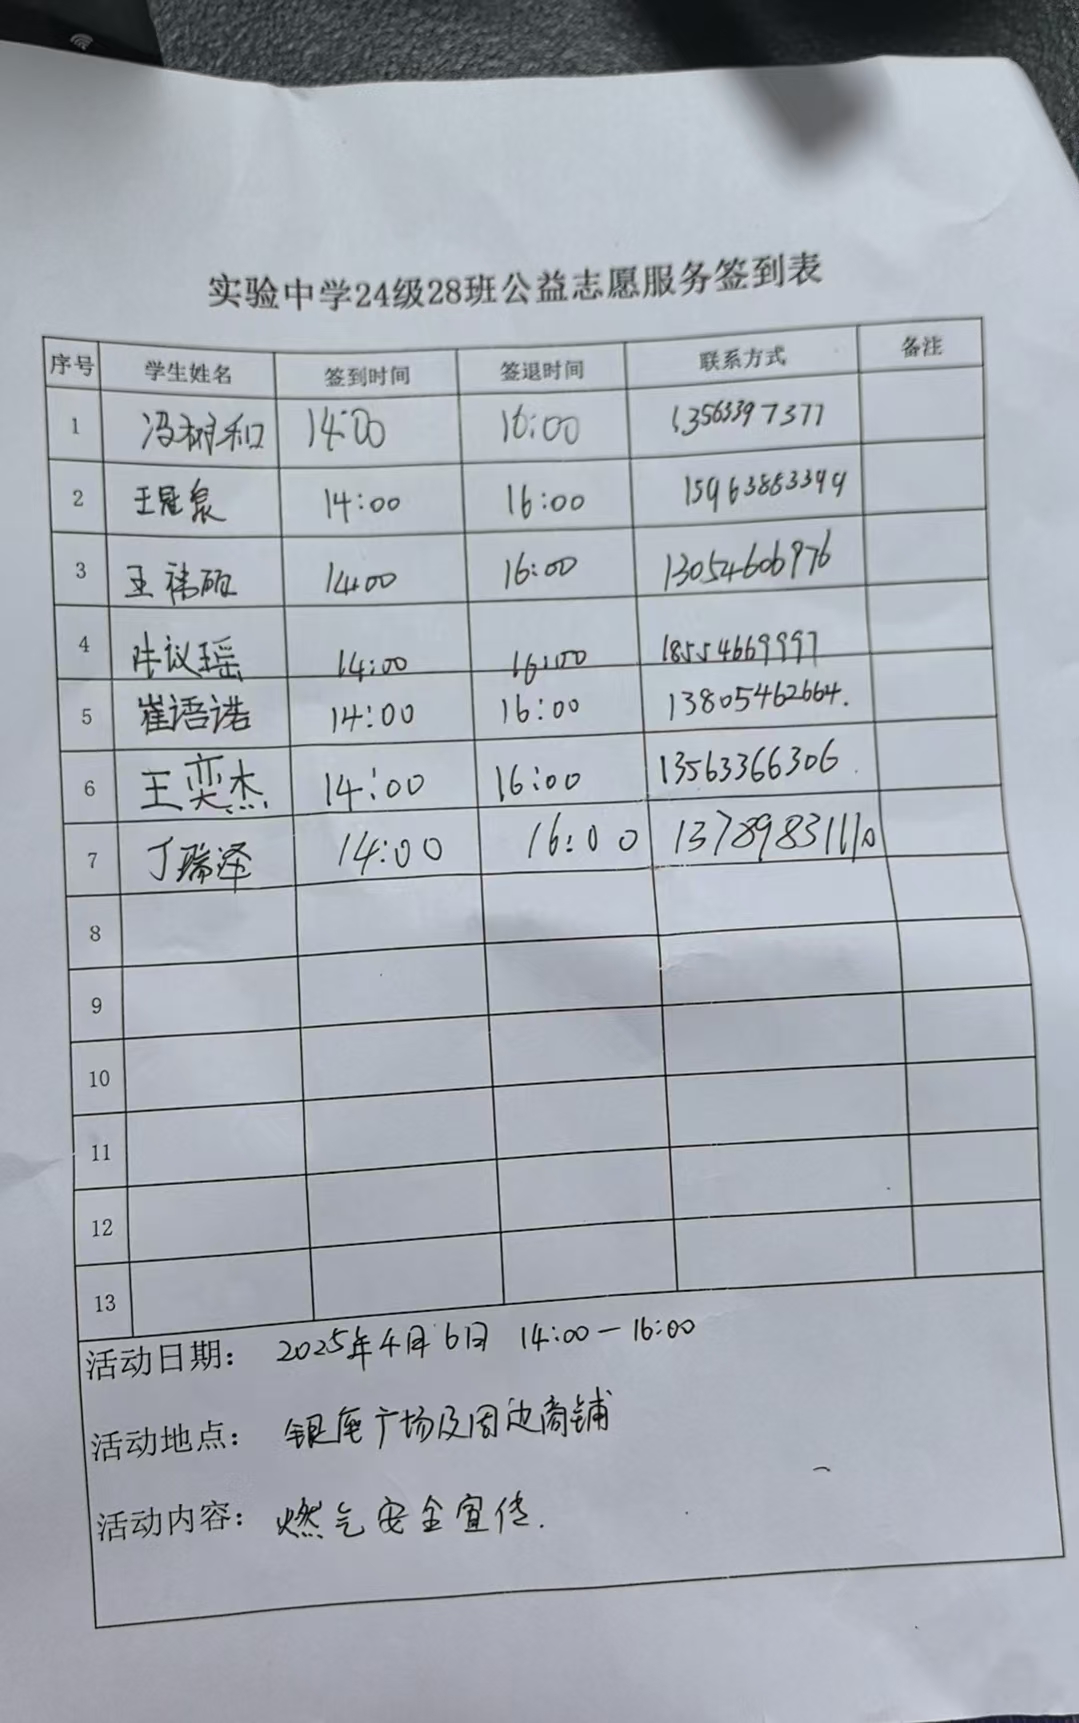 实验中学24级28班公益志愿服务签到表
序号 学生姓名 签到时间 签退时间 联系方式 备注
1 冯树和 14:00 16:00 13563397377
2 王冠泉 14:00 16:00 15963883399
3 王祎硕 14:00 16:00 13054606976
4 议瑶 14:00 16:00 18554669997
5 崔语诺 14:00 16:00 13805462664.
6 王奕杰 14:00 16:00 13563366306
7 丁瑞泽 14:00 16:00
8
9
10
11
12
13
活动日期: 2025年4月6日 14:00-16:00
活动地点: 银座广场及周边商铺
活动内容: 燃气安全宣传.